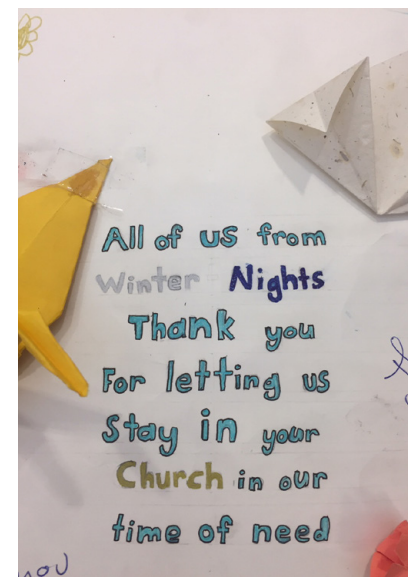 All of us from
Winter Nights
Thank you
For letting us
Stay in your
Church in our
time of need